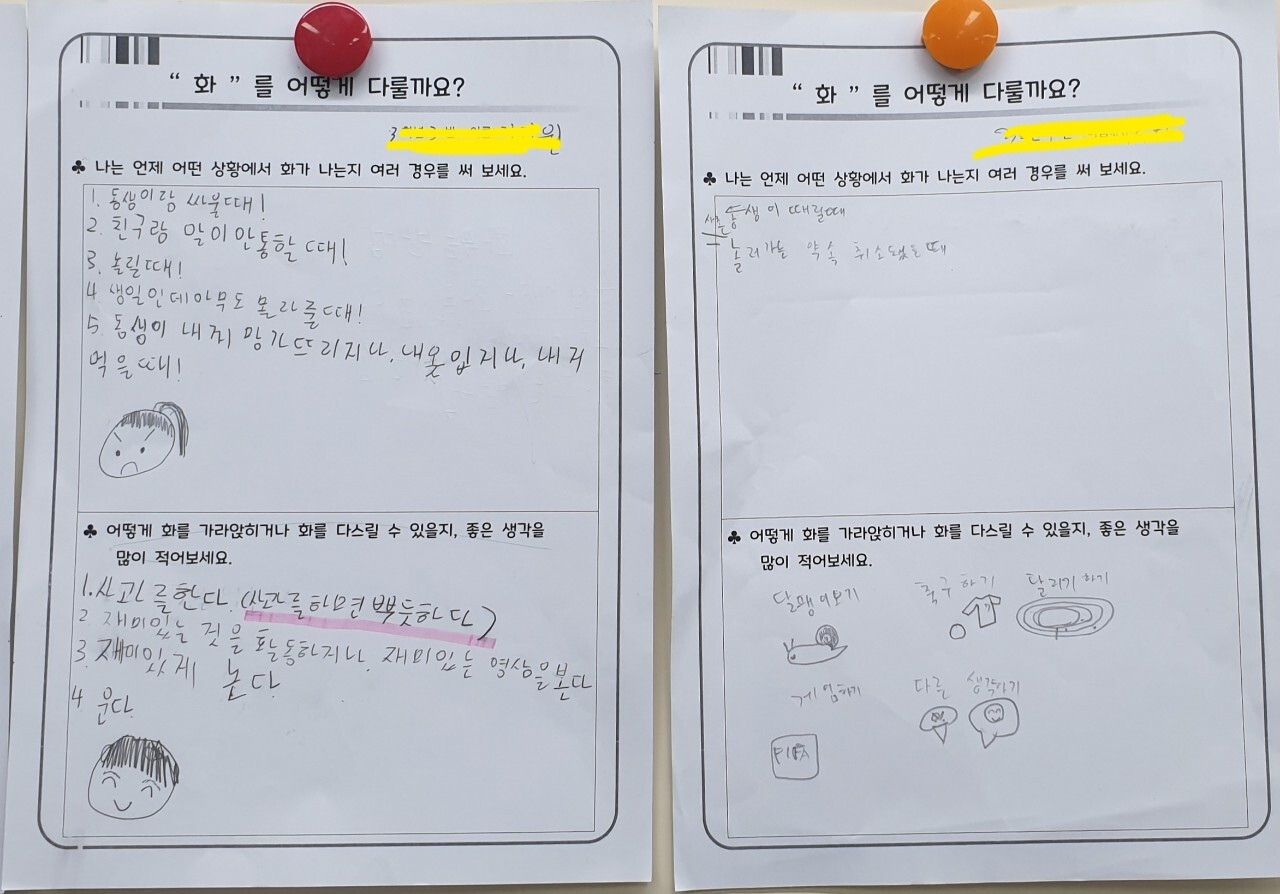 “ 화 ” 를 어떻게 다룰까요?
♣ 나는 언제 어떤 상황에서 화가 나는지 여러 경우를 써 보세요.
1. 동생이랑 싸울때!
2. 친구랑 말이안통할 때!
3. 놀릴때!
4. 생일인데아무도 몰라줄때!
5. 동생이 내꺼 망가뜨리지나, 내옷입지나, 내꺼
먹을때!
♣ 어떻게 화를 가라앉히거나 화를 다스릴 수 있을지, 좋은 생각을
많이 적어보세요.
1. 사과를한다. (사과를하면 뿌듯하다)
2. 재미있는 것을 활동하지나, 재미있는 영상을본다
3. 재미있게 논다
4 운다.
“ 화 ” 를 어떻게 다룰까요?
♣ 나는 언제 어떤 상황에서 화가 나는지 여러 경우를 써 보세요.
사촌동생이 때릴때
놀러가는 약속 취소됐을때
♣ 어떻게 화를 가라앉히거나 화를 다스릴 수 있을지, 좋은 생각을
많이 적어보세요.
달팽이보기 축구하기 달리기하기
게임하기 다른 생각하기
FIFA